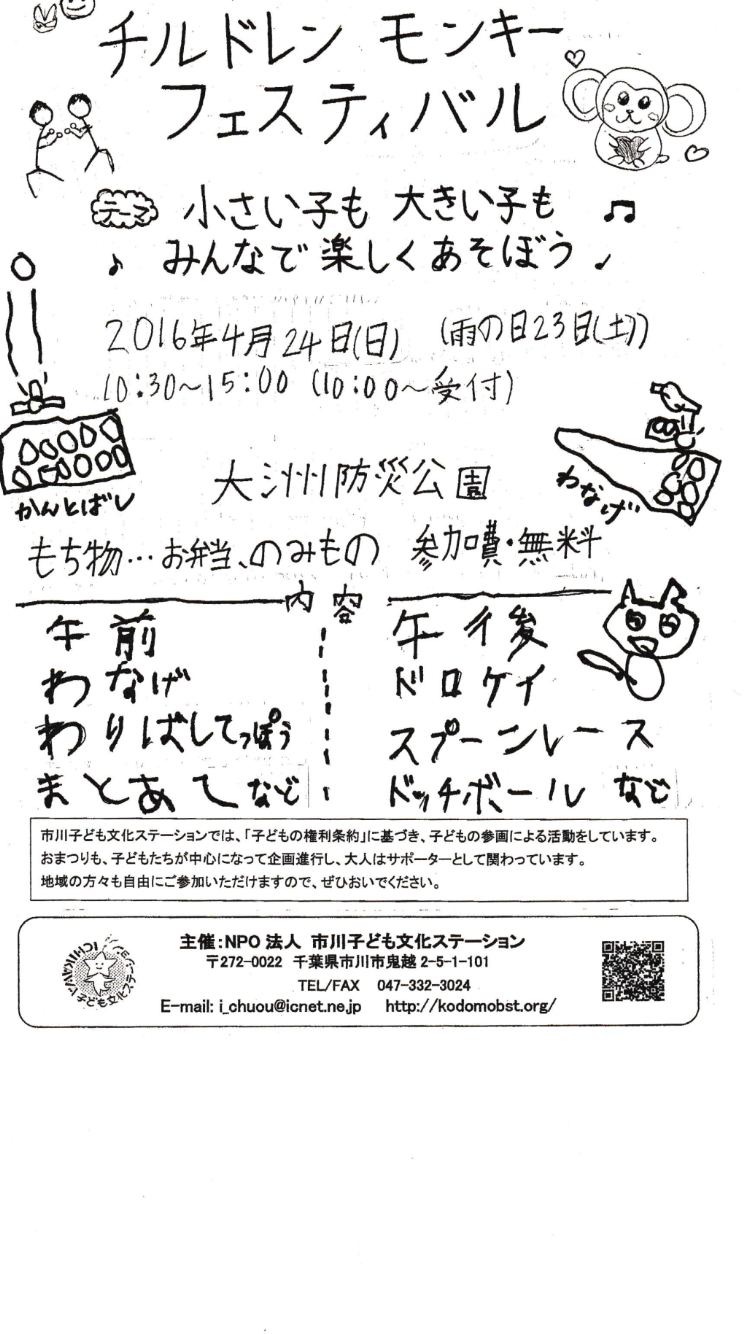 チルドレン モンキー
フェスティバル
テーマ 小さい子も 大きい子も
みんなで楽しくあそぼう
2016年4月24日(日) (雨の日23日(土))
10:30～15:00 (10:00～受付)
かんとばし
わなげ
大洲防災公園
もち物…お弁当、のみもの 参加費・無料
内容
午前
わなげ
わりばしてっぽう
まとあてなど
午後
ドロケイ
スプーンレース
ドッチボール など
市川子ども文化ステーションでは、「子どもの権利条約」に基づき、子どもの参画による活動をしています。
おまつりも、子どもたちが中心になって企画進行し、大人はサポーターとして関わっています。
地域の方々も自由にご参加いただけますので、ぜひおいでください。
主催:NPO 法人 市川子ども文化ステーション
〒272-0022 千葉県市川市鬼越 2-5-1-101
TEL/FAX 047-332-3024
E-mail: i_chuou@icnet.ne.jp http://kodomobst.org/